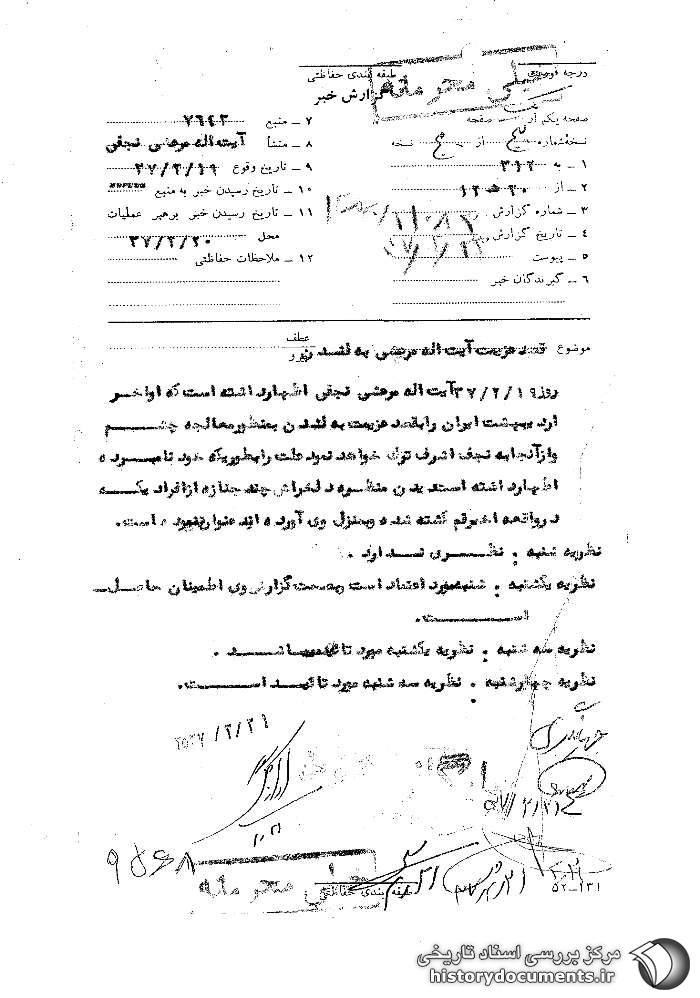 درجه فوریت
طبقه بندی حفاظتی
خیلی محرمانه
گزارش خبر
صفحه یکم از یک صفحه
نسخه شماره پنج از پنج نسخه
۱ ـ به ۳۱۲
۲ ـ از
۳ ـ شماره گزارش
۴ ـ تاریخ گزارش
۵ ـ پیوست
۶ ـ گیرندگان خبر
۷ ـ منبع ۷۶۴۳
۸ ـ منشأ آیت اله مرعشی نجفی
۹ ـ تاریخ وقوع ۳۷/۲/۱۹
۱۰ ـ تاریخ رسیدن خبر به منبع
۱۱ ـ تاریخ رسیدن خبر برهبر عملیات
محل ۳۷/۲/۲۰
۱۲ ـ ملاحظات حفاظتی
عطف
موضوع قصد عزیمت آیت اله مرعشی به لندن
روز ۳۷/۲/۱۹ آیت اله مرعشی نجفی اظهار داشته است که اواخر
اردیبهشت ایران را بقصد عزیمت به لندن بمنظور معالجه چشم
و از آنجا به نجف اشرف ترک خواهد نمود علت را بطوریکه خود نامبرده
اظهار داشته است دیدن منظره دلخراش چند جنازه از افرادیکه
در واقعه اخیر قم کشته شده و بمنزل وی آورده اند عنوان نموده است.
نظریه شنبه : نظری ندارد .
نظریه یکشنبه : شنبه مورد اعتماد است و بصحت گزارش وی اطمینان حاصل
است.
نظریه سه شنبه : نظریه یکشنبه مورد تائید میباشد .
نظریه چهارشنبه : نظریه سه شنبه مورد تائید است.
۲۵۳۷/۲/۲۱
۵۷/۲/۲۴
۹۵۶۸
خیلی محرمانه
طبقه بندی حفاظتی
۵۲-۱۳۱
مرکز بررسی اسناد تاریخی
historydocuments.ir